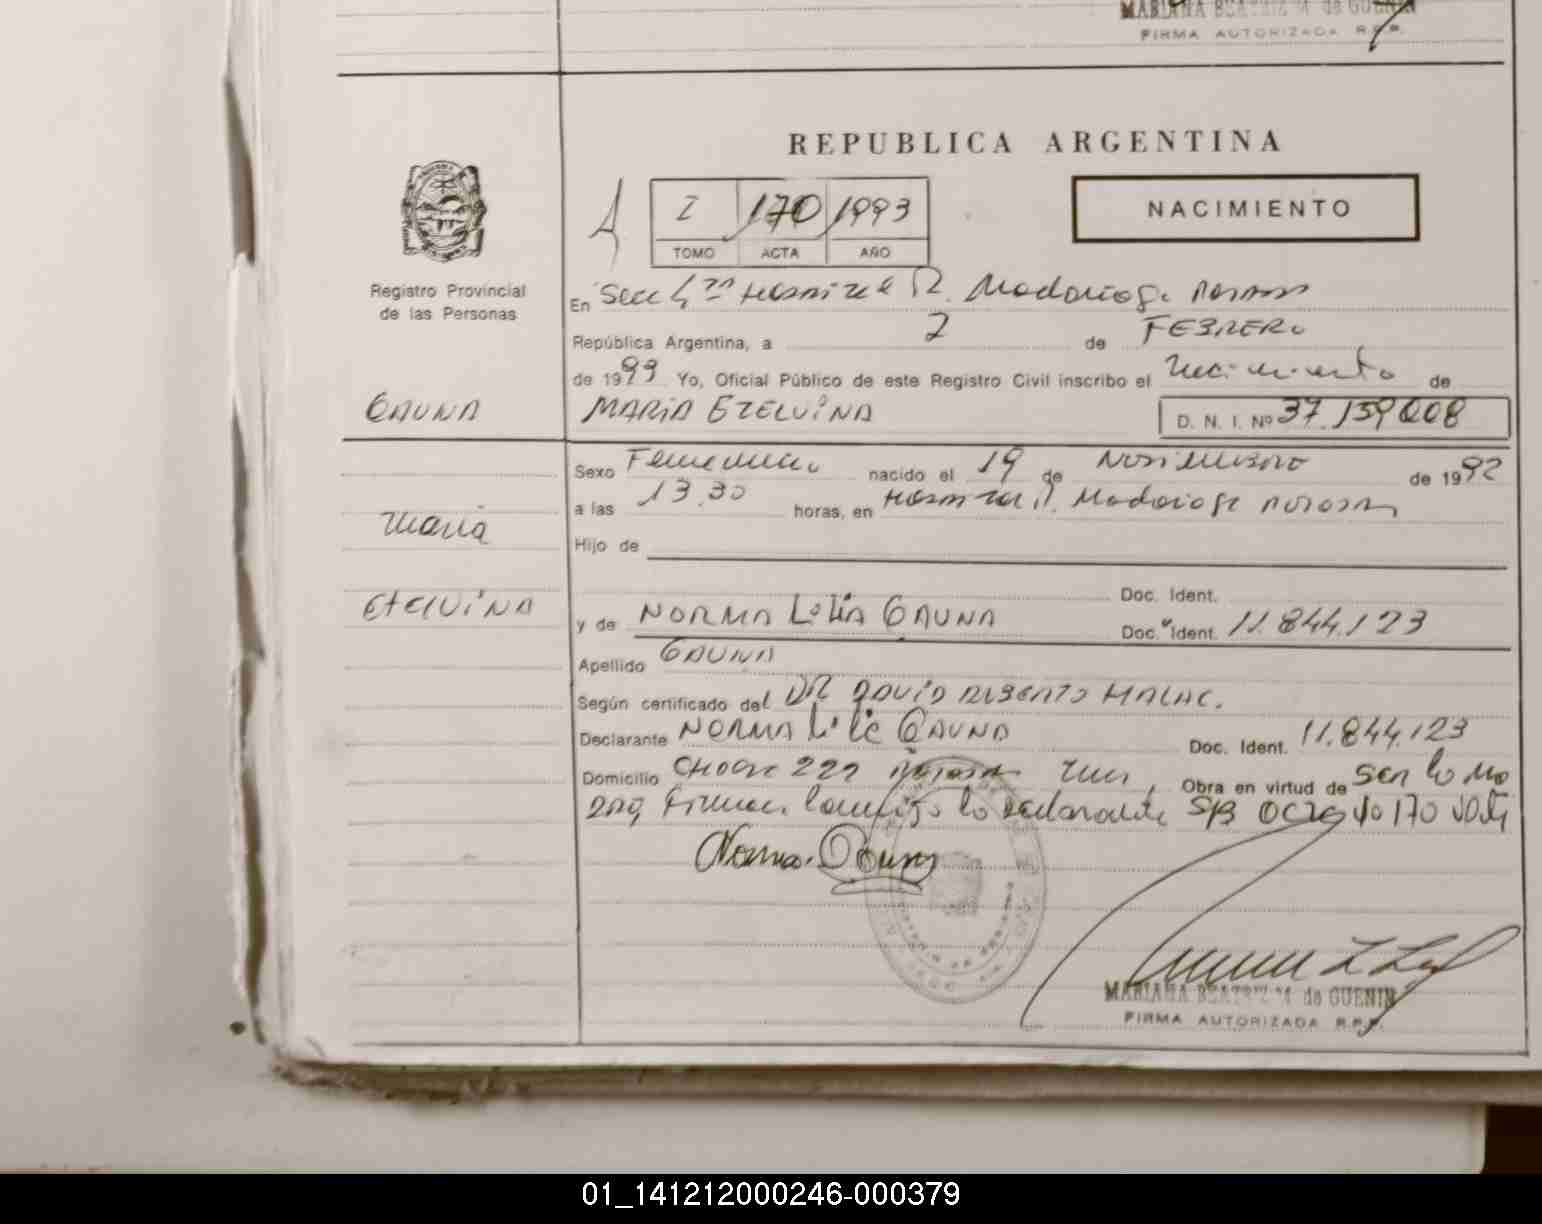 MARIANA BEATRIZ M de GUENIN
FIRMA AUTORIZADA R.P.P.
REPUBLICA ARGENTINA
NACIMIENTO
I 170 1993
TOMO ACTA AÑO
Registro Provincial
de las Personas
En Secc 4ta Hospital R. Madariaga Posadas
República Argentina, a 2 de FEBRERO
de 1993 Yo, Oficial Público de este Registro Civil inscribo el Nacimiento de
GAUNA MARIA ETELVINA D. N. I. Nº 37.159008
Sexo Femenino nacido el 19 de Noviembre de 1992
a las 13.30 horas, en Hospital R. Madariaga Posadas
Maria
Hijo de
Doc. Ident.
ETELVINA
y de NORMA LiLiA GAUNA Doc. Ident. 11.844.123
Apellido GAUNA
Según certificado del DR DAVID ALBERTO MALAC.
Declarante NORMA LiLiA GAUNA Doc. Ident. 11.844.123
Domicilio 222 Posadas Obra en virtud de ser la ma
dre Firman conmigo la declarante S/B
Norma Gauna
MARIANA BEATRIZ M de GUENIN
FIRMA AUTORIZADA R.P.P.
01_141212000246-000379